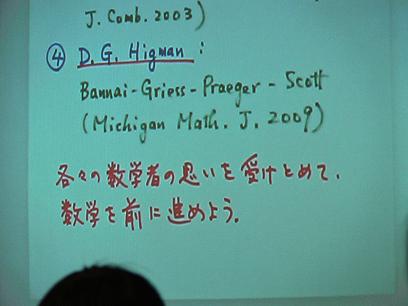 J. Comb. 2003)
④ D. G. Higman :
Bannai-Griess-Praeger-Scott
(Michigan Math. J. 2009)
各々の数学者の思いを受けとめて、
数学を前に進めよう。